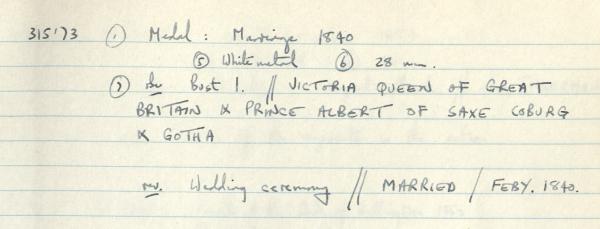 315'73 ① Medal : Marriage 1840
⑤ White metal ⑥ 28 mm.
⑦ Bust l. // VICTORIA QUEEN OF GREAT
BRITAIN & PRINCE ALBERT OF SAXE COBURG
& GOTHA
rev. Wedding ceremony // MARRIED / FEBY. 1840.